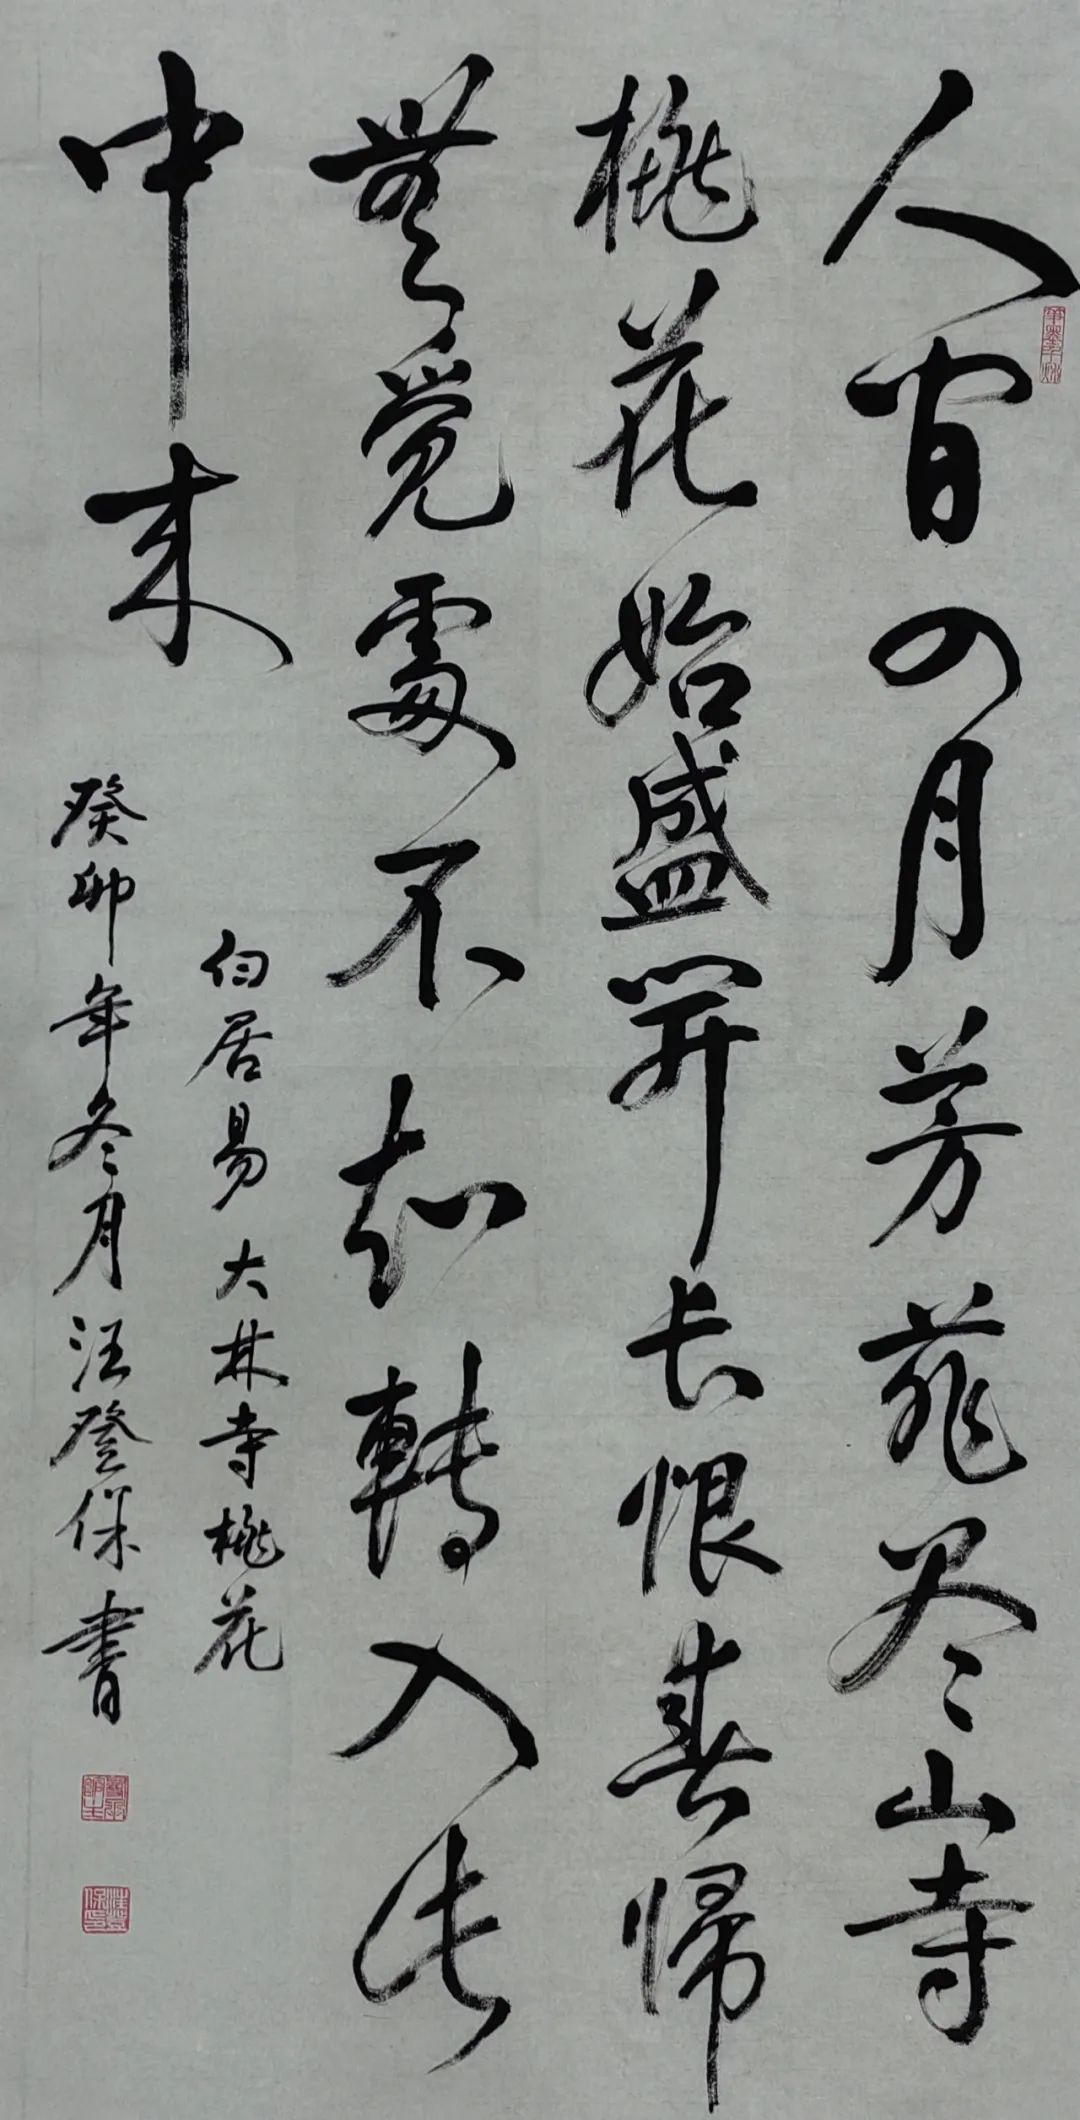 人间四月芳菲尽山寺
桃花始盛開长恨春帰
無覓處不知轉入此
中来
白居易大林寺桃花
癸卯年冬月汪登保書
汪登保印